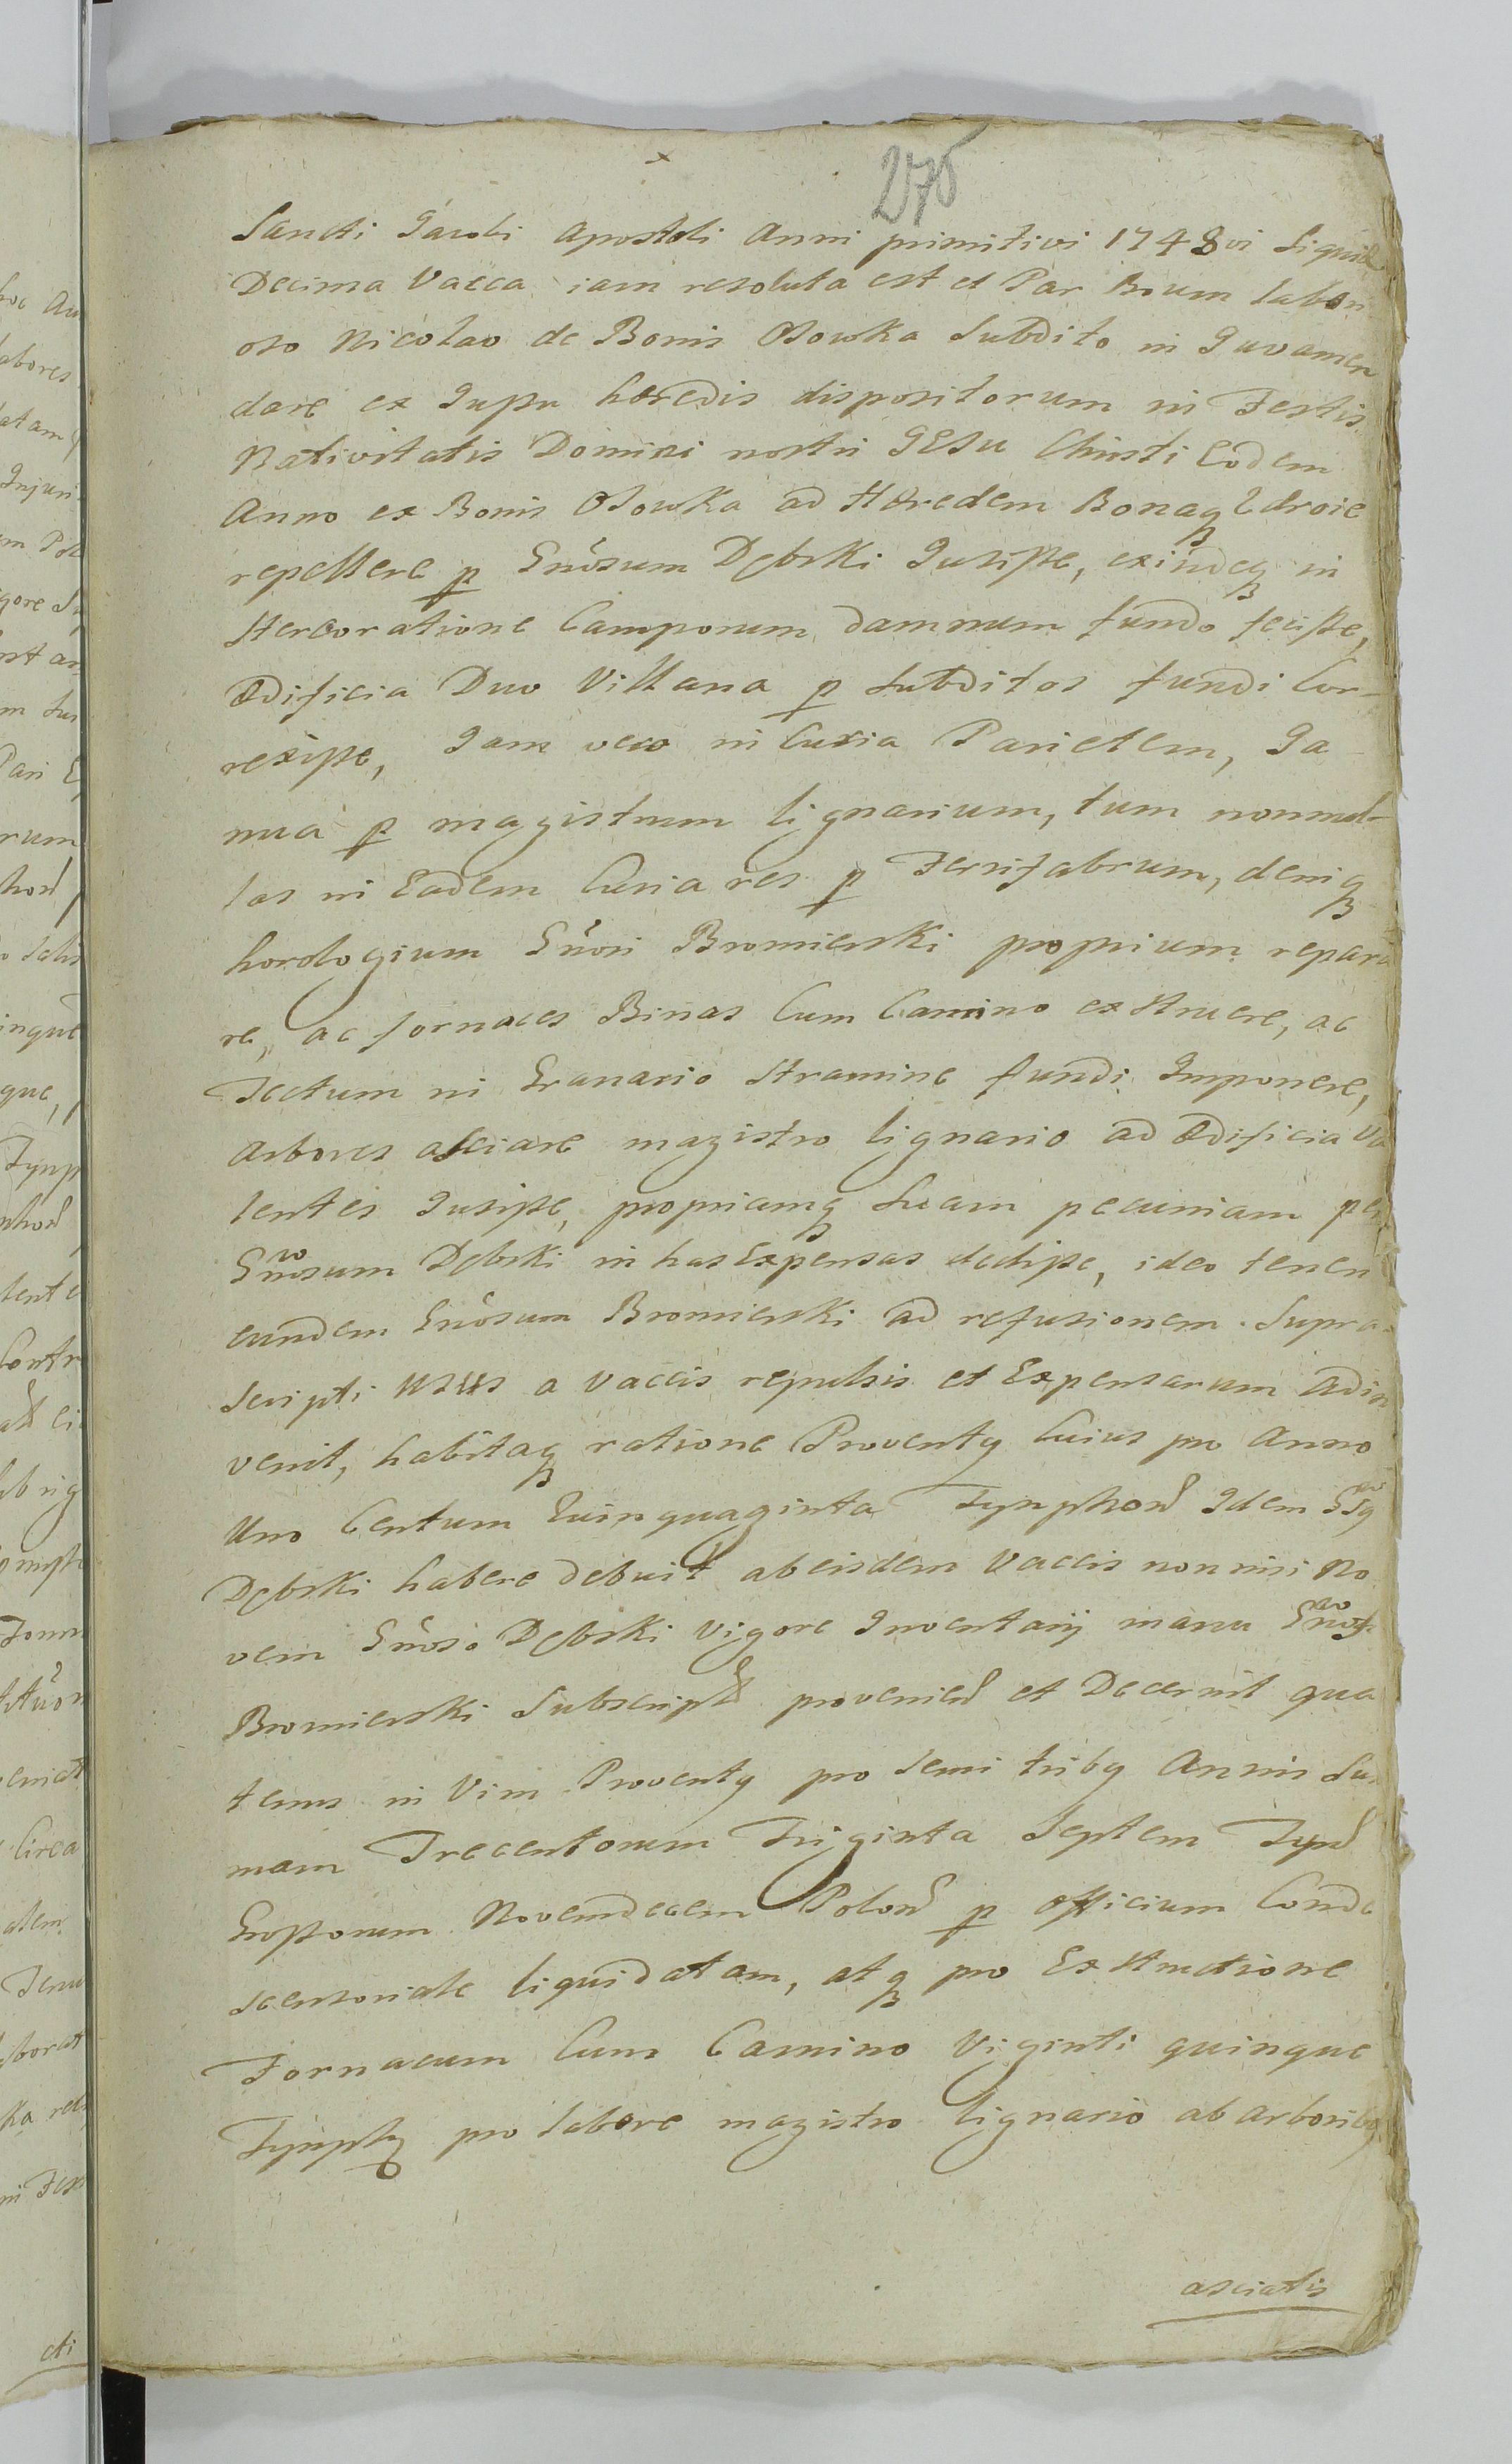 275
Sancti Jacobi Apostoli Anni primitivi 1748vi siquid
Decima Vacca iam resoluta est et Par Boum labori
oso Nicolao de Bonis Osowka subdito in Juvamen
dare ex Jussu hæredis dispositorum in Festis
Nativitatis Domini nostri JESu Christi Eodem
Anno ex Bonis Osowka ad Hæredem Bonaq Zdroie
repellere p Gnosum Dębski Jusisse, exindeq in
stercoratione Camporum damnum fundo fecisse,
Ædificia Duo Villana p subditos fundi Cor-
rexisse, Jam vero in Curia Parietem, Ja-
nuã p magistrum lignarium, tum nonnul-
las in Eadem Curia res p Ferrifabrum, deniq
horologium Gnosi Bromierski proprium repara
re, ac fornaces Binas Cum Camino exstruere, ac
Tectum in Granario stramine fundi Imponere,
Arbores asciare magistro lignario ad Ædificia va
lentes Jusisse, propriamq suam pecuniam per
Gnosum Dębski in has Expensas dedisse, ideo teneri
eundem Gnosum Bromierski ad refusionem supra
scripti usus a vaccis repulsis et Expensarum Adin
venit, habitaq ratione Proventq Cuius pro Anno
Uno Centum Quinquaginta Tynphon Idem Gsq
Dębski habere debuit ab eisdem Vaccis non nisi No
vem Gnoso Dębski vigore Inventarij manu Gnosi
Bromierski Subscript provenien et Decernit qua
tenus in Vim Proventq pro semi tribq Annis Su
mam Trecentorum Triginta Septem Tynf
Grossorum Novemdecem Polon p officium Conde
scensoriale liquidatam, atq pro Exstructione
Fornacum Cum Camino Viginti quinque
Tynph pro labore magistro lignario ab arboribq
asciatis